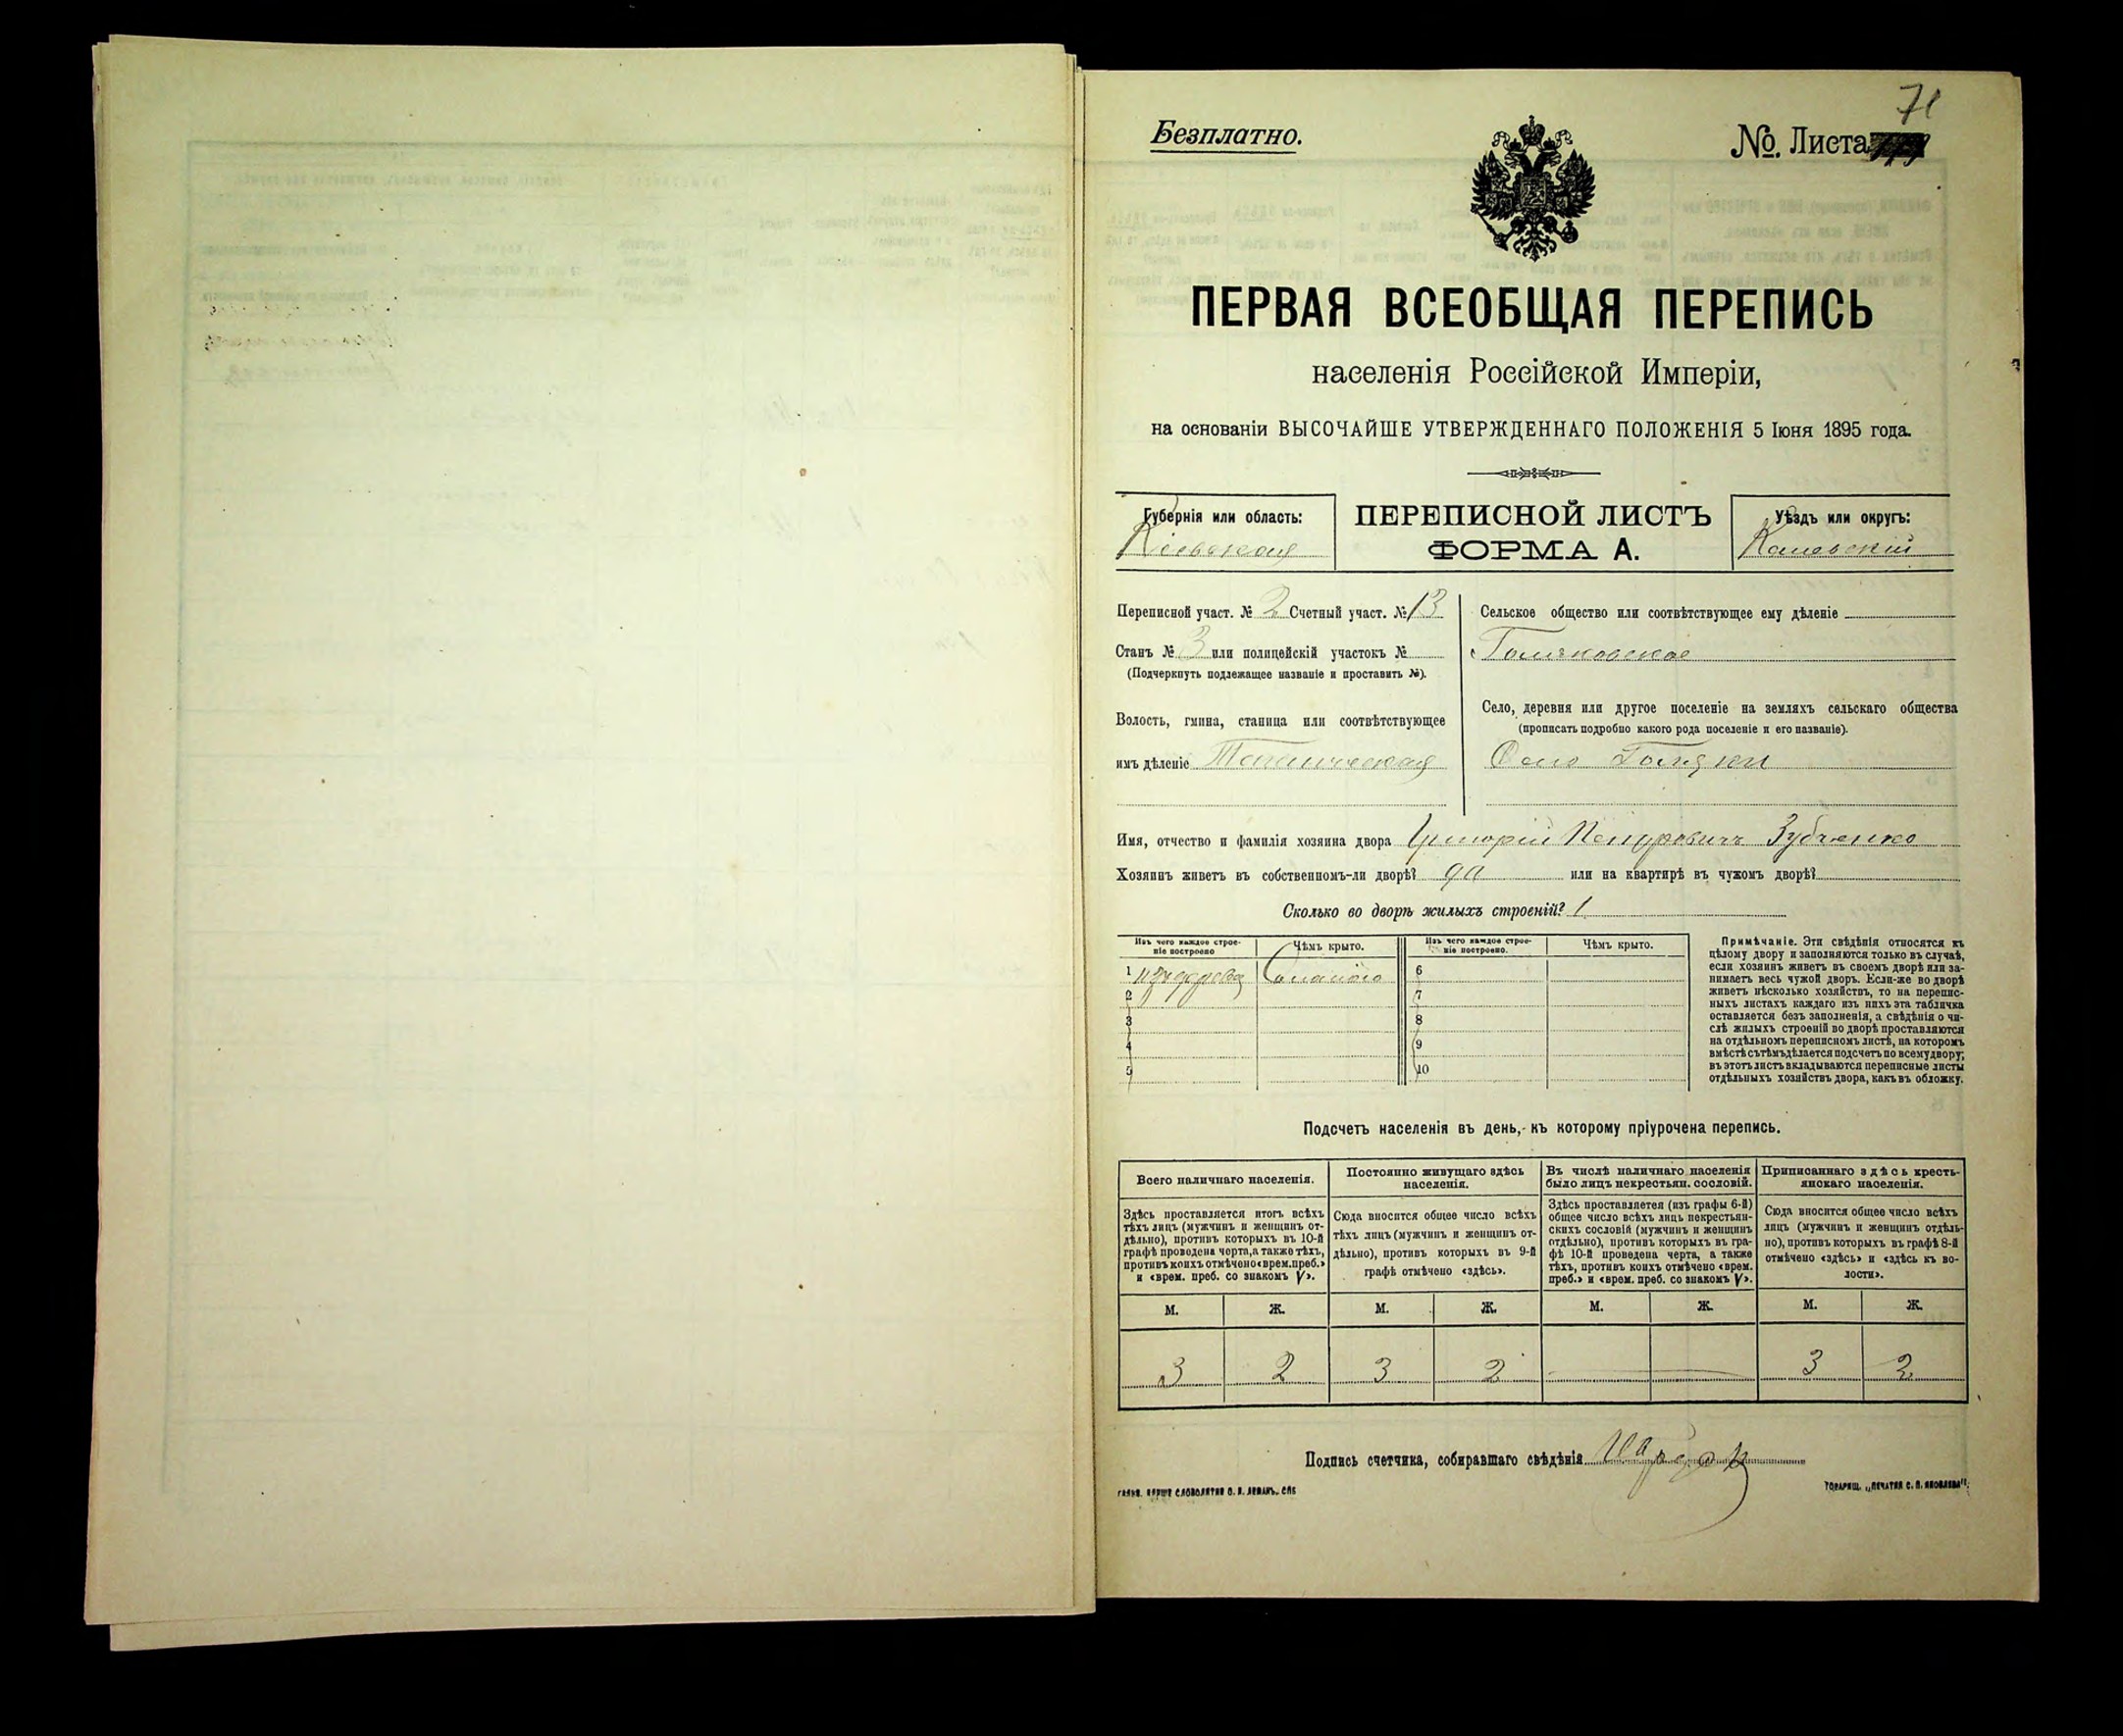 71
Безплатно.
№. Листа
ПЕРВАЯ ВСЕОБЩАЯ ПЕРЕПИСЬ
населенія Россійской Имперіи,
на основаніи ВЫСОЧАЙШЕ УТВЕРЖДЕННАГО ПОЛОЖЕНІЯ 5 Іюня 1895 года.
Губернія или область:
Кіевская
ПЕРЕПИСНОЙ ЛИСТЪ
ФОРМА А.
Уѣздъ или округъ:
Каневскій
Переписной участ. № 2 Счетный участ. № 13
Станъ № 3 или полицейскій участокъ №
(Подчеркнуть подлежащее названіе и проставить №).
Волость, гмина, станица или соотвѣтствующее
имъ дѣленіе Таганческая
Сельское общество или соотвѣтствующее ему дѣленіе
Голяковское
Село, деревня или другое поселеніе на земляхъ сельскаго общества
(прописать подробно какого рода поселеніе и его названіе).
Село Голяки
Имя, отчество и фамилія хозяина двора Григорій Петровичъ Зубченко
Хозяинъ живетъ въ собственномъ-ли дворѣ? да или на квартирѣ въ чужомъ дворѣ?
Сколько во дворѣ жилыхъ строеній? 1
Изъ чего каждое строеніе построено
Чѣмъ крыто.
Изъ чего каждое строеніе построено.
Чѣмъ крыто.
1 изъ дерева Соломою 6
2 7
3 8
4 9
5 10
Примѣчаніе. Эти свѣдѣнія относятся къ
цѣлому двору и заполняются только въ случаѣ,
если хозяинъ живетъ въ своемъ дворѣ или за-
нимаетъ весь чужой дворъ. Если-же во дворѣ
живетъ нѣсколько хозяйствъ, то на перепис-
ныхъ листахъ каждаго изъ нихъ эта табличка
оставляется безъ заполненія, а свѣдѣнія о чи-
слѣ жилыхъ строеній во дворѣ проставляются
на отдѣльномъ переписномъ листѣ, на которомъ
вмѣстѣ съ тѣмъ дѣлается подсчетъ по всему двору;
въ этотъ листъ вкладываются переписные листы
отдѣльныхъ хозяйствъ двора, какъ въ обложку.
Подсчетъ населенія въ день, къ которому пріурочена перепись.
Всего наличнаго населенія.
Здѣсь проставляется итогъ всѣхъ
тѣхъ лицъ (мужчинъ и женщинъ от-
дѣльно), противъ которыхъ въ 10-й
графѣ проведена черта, а также тѣхъ,
противъ коихъ отмѣчено «врем. преб.»
и «врем. преб. со знакомъ V».
Постоянно живущаго здѣсь
населенія.
Сюда вносится общее число всѣхъ
тѣхъ лицъ (мужчинъ и женщинъ от-
дѣльно), противъ которыхъ въ 9-й
графѣ отмѣчено «здѣсь».
Въ числѣ наличнаго населенія
было лицъ некрестьян. сословій.
Здѣсь проставляется (изъ графы 6-й)
общее число всѣхъ лицъ некрестьян-
скихъ сословій (мужчинъ и женщинъ
отдѣльно), противъ которыхъ въ гра-
фѣ 10-й проведена черта, а также
тѣхъ, противъ коихъ отмѣчено «врем.
преб.» и «врем. преб. со знакомъ V».
Приписаннаго здѣсь кресть-
янскаго населенія.
Сюда вносится общее число всѣхъ
лицъ (мужчинъ и женщинъ отдѣль-
но), противъ которыхъ въ графѣ 8-й
отмѣчено «здѣсь» и «здѣсь къ во-
лости».
М. Ж. М. Ж. М. Ж. М. Ж.
3 2 3 2 — — 3 2
Подпись счетчика, собиравшаго свѣдѣнія
СЛОВОЛИТНИ О. И. ЛЕМАНЪ. СПБ
ТОВАРИЩ. „ПЕЧАТНЯ С. П. ЯКОВЛЕВА“.